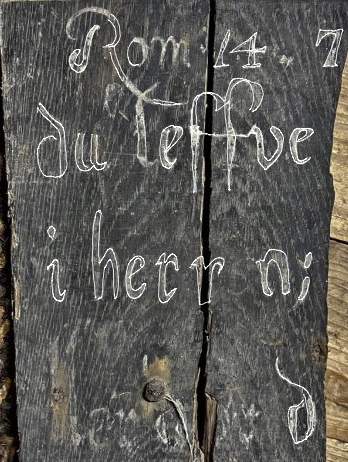 Rom 14. 7
du leffve
i herr n;
d